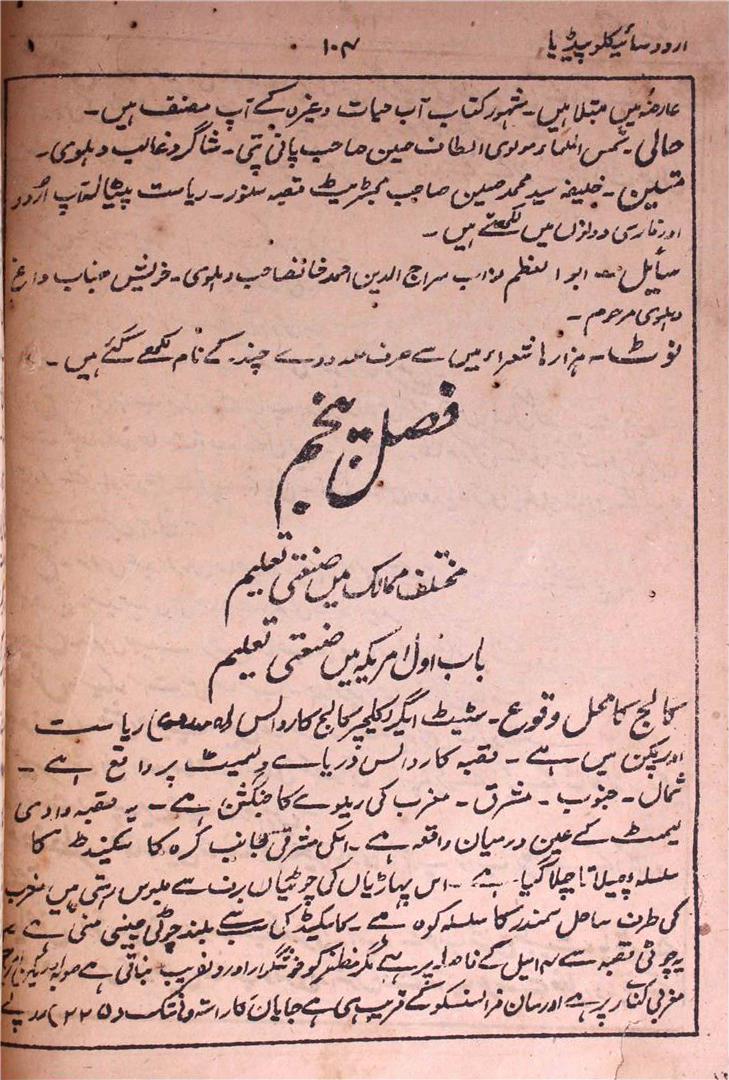 اردو سائیکلوپیڈیا ۱۰۴ ۱
عارضہ میں مبتلا ہیں۔ مشہور کتاب آب حیات وغیرہ کے آپ مصنف ہیں۔
حالی۔ شمس العلماء مولوی الطاف حسین صاحب پانی پتی۔ شاگرد غالب دہلوی۔
متین۔ خلیفہ سید محمد حسین صاحب مجسٹریٹ قصبہ سنور۔ ریاست پٹیالہ آپ اردو
اور فارسی دونوں میں لکھتے ہیں۔
سائل۔ ابو المعظم نواب سراج الدین احمد خانصاحب دہلوی۔ خویش جناب داغ
دہلوی مرحوم۔
نوٹ۔ ہزارہا شعراء میں سے صرف معدودے چند کے نام لکھے گئے ہیں۔
فصل پنجم
مختلف ممالک میں صنعتی تعلیم
باب اول امریکہ میں صنعتی تعلیم
کالج کا محل وقوع۔ سٹیٹ ایگریکلچر کالج کاروالس ریاست
اوریگن میں ہے۔ قصبہ کاروالس دریائے ولیمیٹ پر واقع ہے۔
شمال۔ جنوب۔ مشرق۔ مغرب کی ریلوے کا جنکشن ہے۔ یہ قصبہ وادی
لیمٹ کے عین درمیان واقعہ ہے۔ اسکی مشرقی جانب کوہ کا سکینڈ کا
سلسلہ پھیلاتا چلا گیا ہے۔ اس پہاڑیاں کی چوٹیاں برف سے ملبوس رہتی ہیں مغرب
کی طرف ساحل سمندر کا سلسلہ کوہ ہے۔ کاسکیڈ کی سب سے بلند چوٹی چینی منی ہے
یہ چوٹی قصبہ سے ۴۰ میل کے فاصلہ پر ہے مگر منظر کو خوشگوار اور دلفریب بناتی ہے صوبہ
مغربی کنار پر ہے اور سان فرانسسکو کے قریب ہی ہے جاپان کا راستہ و فٹنک (۲۲۵)